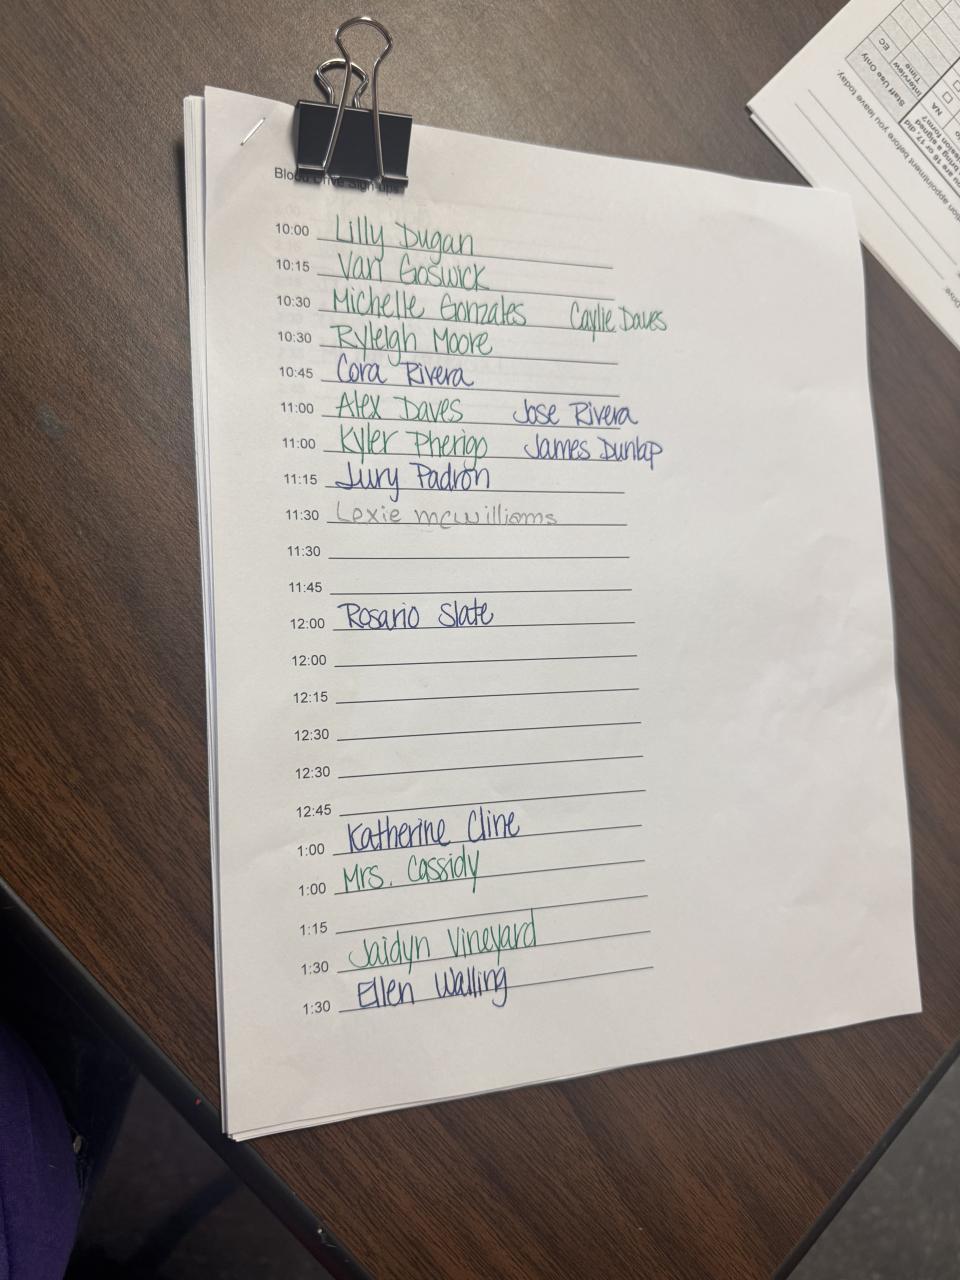 Blood Drive Sign-ups
10:00 Lilly Dugan
10:15 Van Goswick
10:30 Michelle Gonzales Caylie Daves
10:30 Ryleigh Moore
10:45 Cora Rivera
11:00 Alex Daves Jose Rivera
11:00 Kyler Pherigo James Dunlap
11:15 Jury Padron
11:30 Lexie mcwilliams
11:30
11:45
12:00 Rosario Slate
12:00
12:15
12:30
12:30
12:45
1:00 Katherine Cline
1:00 Mrs. Cassidy
1:15
1:30 Jaidyn Vineyard
1:30 Ellen Walling
Staff Use Only
EC
Interview
Time
NA
ou are 16 or 17, did
ring a signed
ission form?
tion appointment before you leave today.